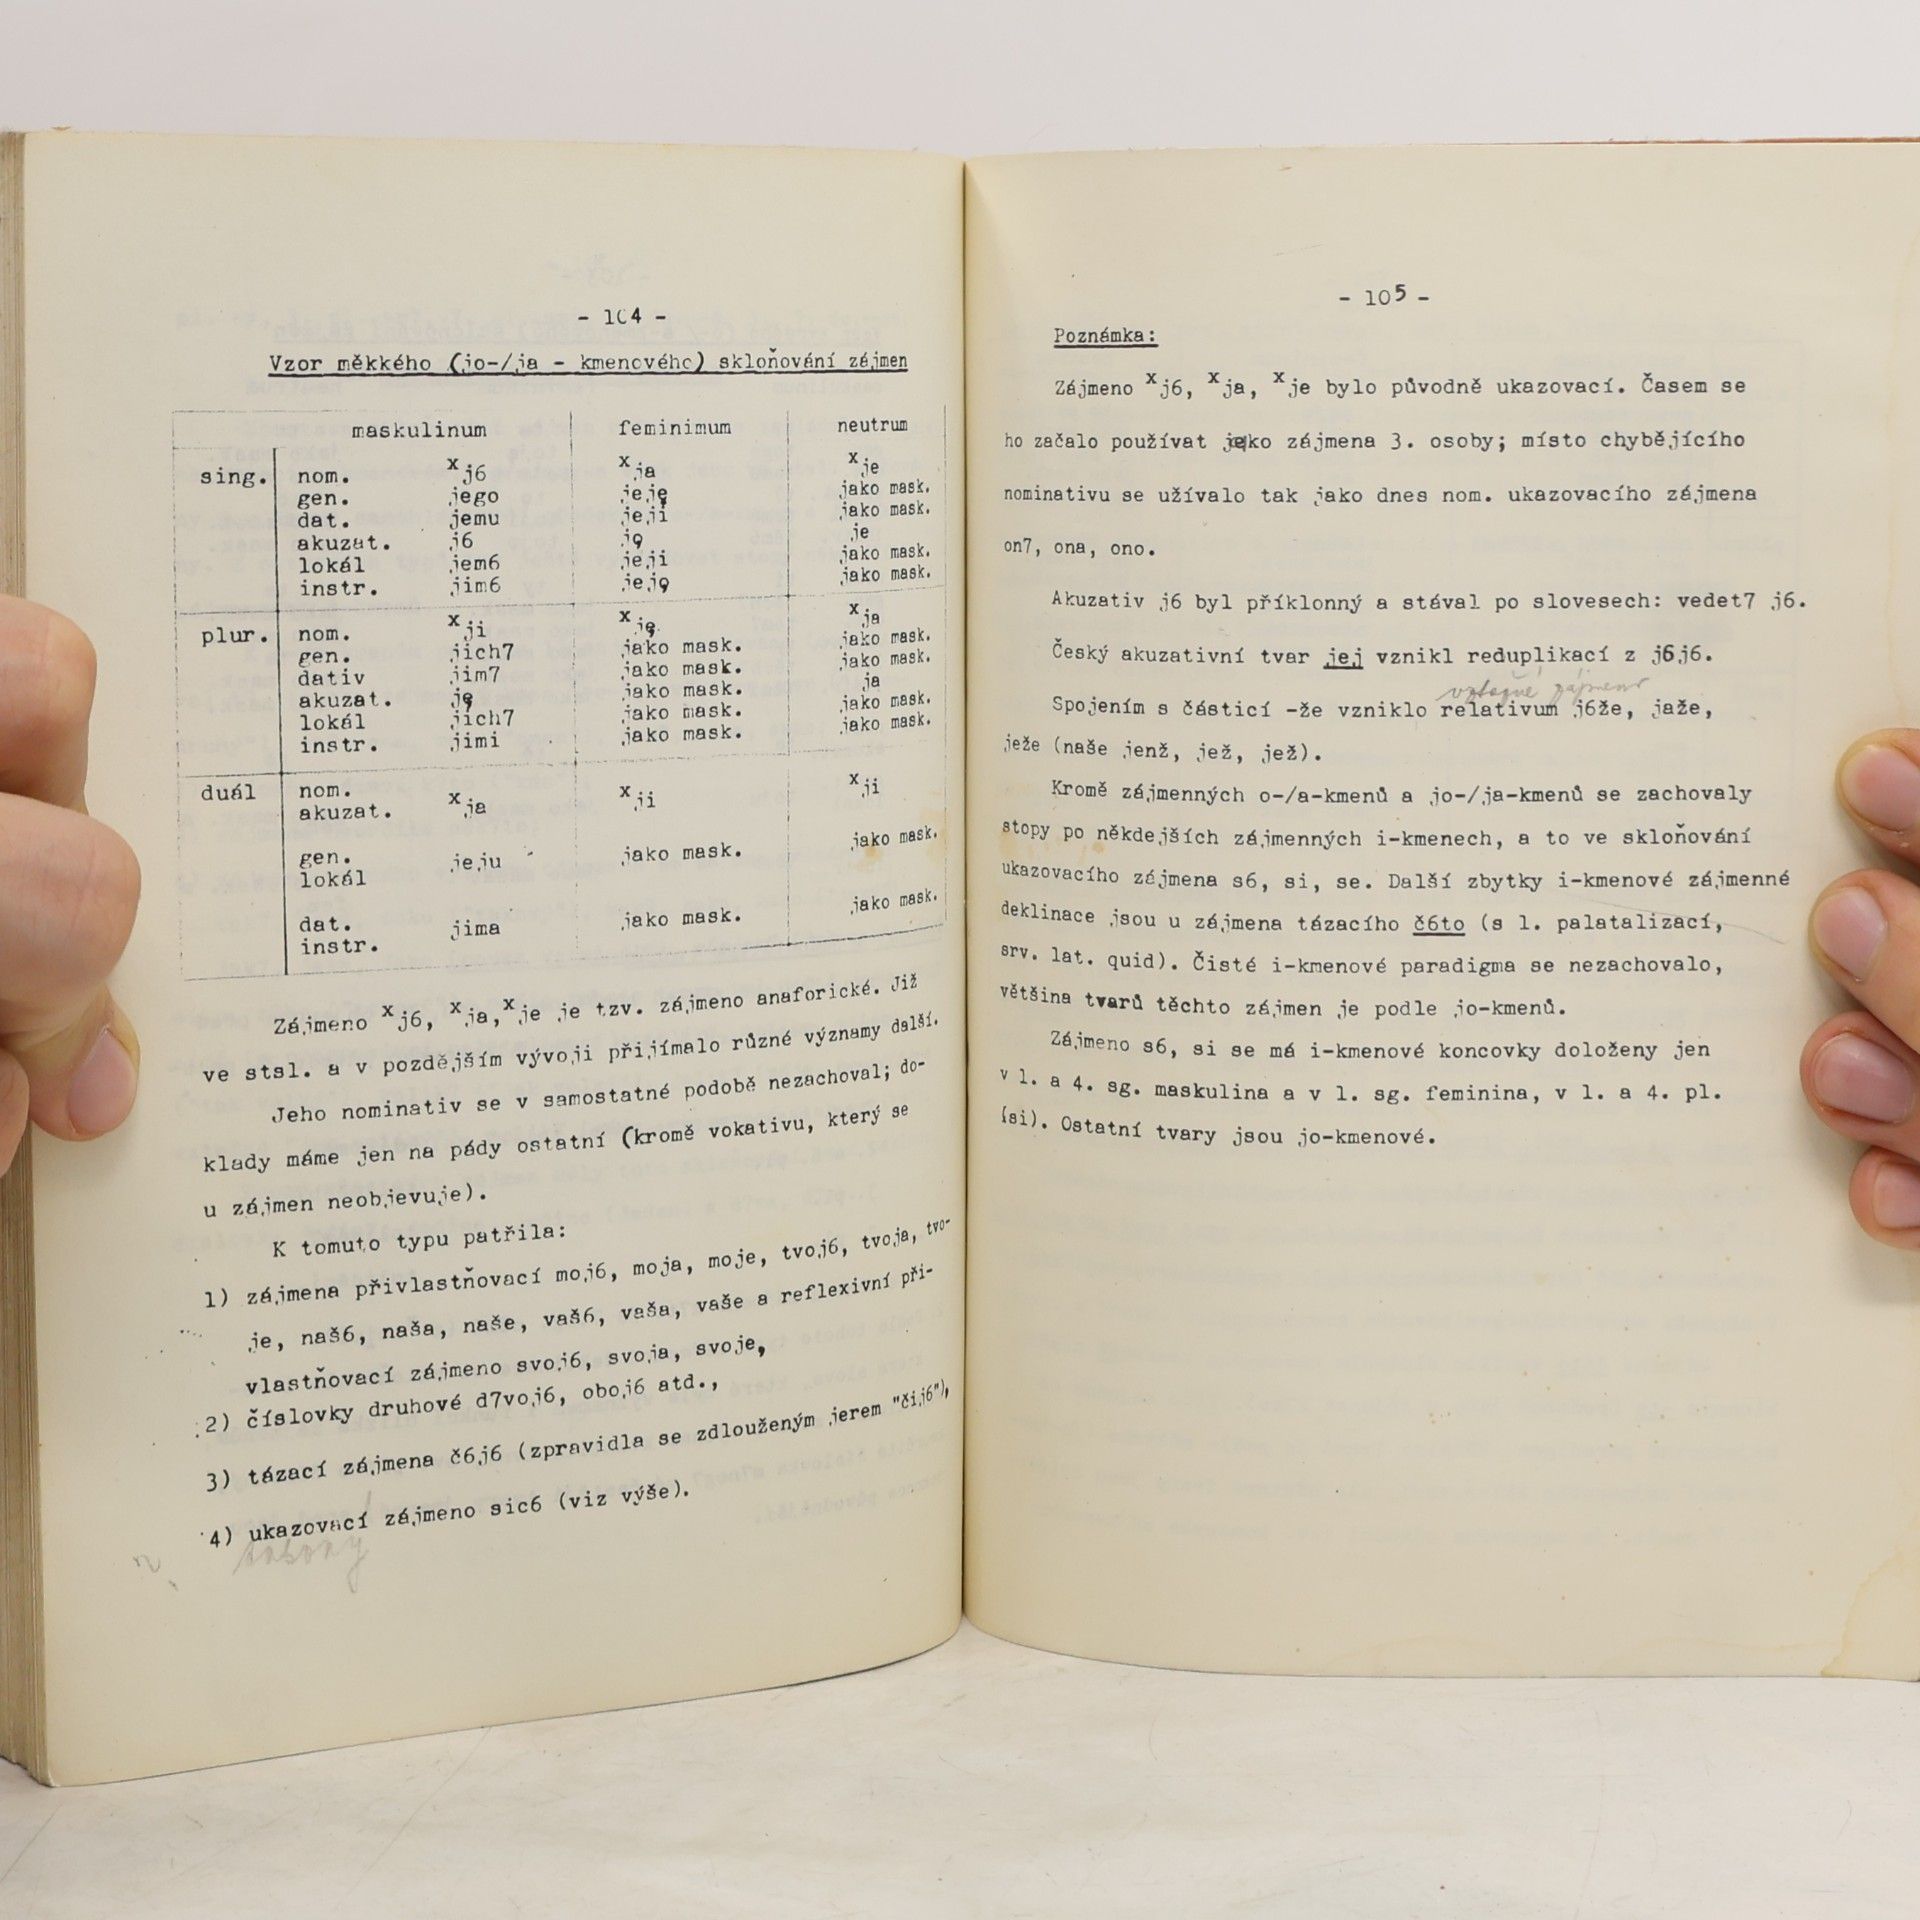 - 104 -
Vzor měkkého (jo-/ja - kmenového) skloňování zájmen
maskulinum feminimum neutrum
sing. nom. xj6 xja xje
gen. jego jeję jako mask.
dat. jemu jeji jako mask.
akuzat. j6 jǫ je
lokál jem6 jeji jako mask.
instr. jim6 jejǫ jako mask.
plur. nom. xji xję xja
gen. jich7 jako mask. jako mask.
dativ jim7 jako mask. jako mask.
akuzat. ję jako mask. ja
lokál jich7 jako mask. jako mask.
instr. jimi jako mask. jako mask.
duál nom.
akuzat. xja xji xji
gen.
lokál jeju jako mask. jako mask.
dat.
instr. jima jako mask. jako mask.
Zájmeno xj6, xja, xje je tzv. zájmeno anaforické. Již
ve stsl. a v pozdějším vývoji přijímalo různé významy další.
Jeho nominativ se v samostatné podobě nezachoval; do-
klady máme jen na pády ostatní (kromě vokativu, který se
u zájmen neobjevuje).
K tomuto typu patřila:
1) zájmena přivlastňovací moj6, moja, moje, tvoj6, tvoja, tvo-
je, naš6, naša, naše, vaš6, vaša, vaše a reflexivní při-
vlastňovací zájmeno svoj6, svoja, svoje,
2) číslovky druhové d7voj6, oboj6 atd.,
3) tázací zájmena č6j6 (zpravidla se zdlouženým jerem "čij6"),
4) ukazovací zájmeno sic6 (viz výše).
- 105 -
Poznámka:
Zájmeno xj6, xja, xje bylo původně ukazovací. Časem se
ho začalo používat jako zájmena 3. osoby; místo chybějícího
nominativu se užívalo tak jako dnes nom. ukazovacího zájmena
on7, ona, ono.
Akuzativ j6 byl příklonný a stával po slovesech: vedet7 j6.
Český akuzativní tvar jej vznikl reduplikací z j6j6.
vztažné zájmeno
Spojením s částicí -že vzniklo relativum j6že, jaže,
ježe (naše jenž, jež, jež).
Kromě zájmenných o-/a-kmenů a jo-/ja-kmenů se zachovaly
stopy po někdejších zájmenných i-kmenech, a to ve skloňování
ukazovacího zájmena s6, si, se. Další zbytky i-kmenové zájmenné
deklinace jsou u zájmena tázacího č6to (s l. palatalizací,
srv. lat. quid). Čisté i-kmenové paradigma se nezachovalo,
většina tvarů těchto zájmen je podle jo-kmenů.
Zájmeno s6, si se má i-kmenové koncovky doloženy jen
v l. a 4. sg. maskulina a v l. sg. feminina, v l. a 4. pl.
(si). Ostatní tvary jsou jo-kmenové.